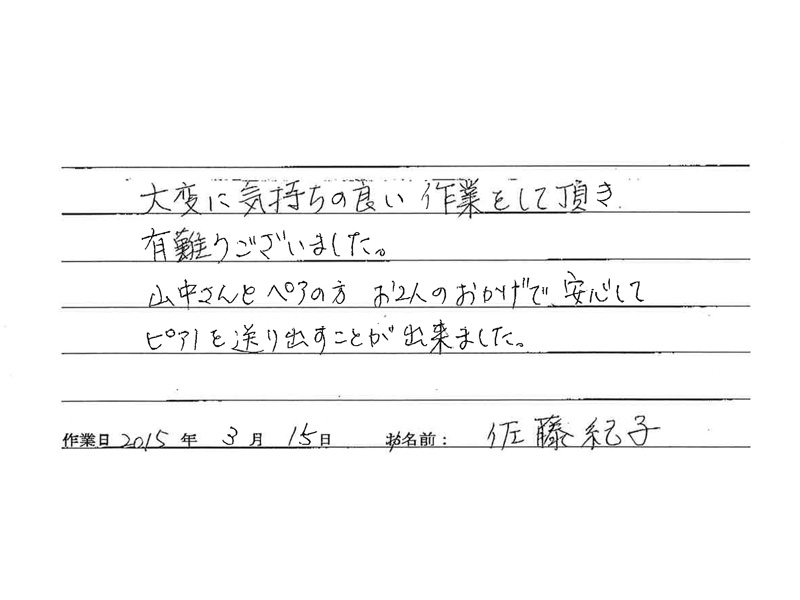 大変に気持ちの良い作業をして頂き
有難うございました。
山中さんとペアの方 お2人のおかげで、安心して
ピアノを送り出すことが出来ました。
作業日 2015 年 3 月 15 日 お名前: 佐藤紀子